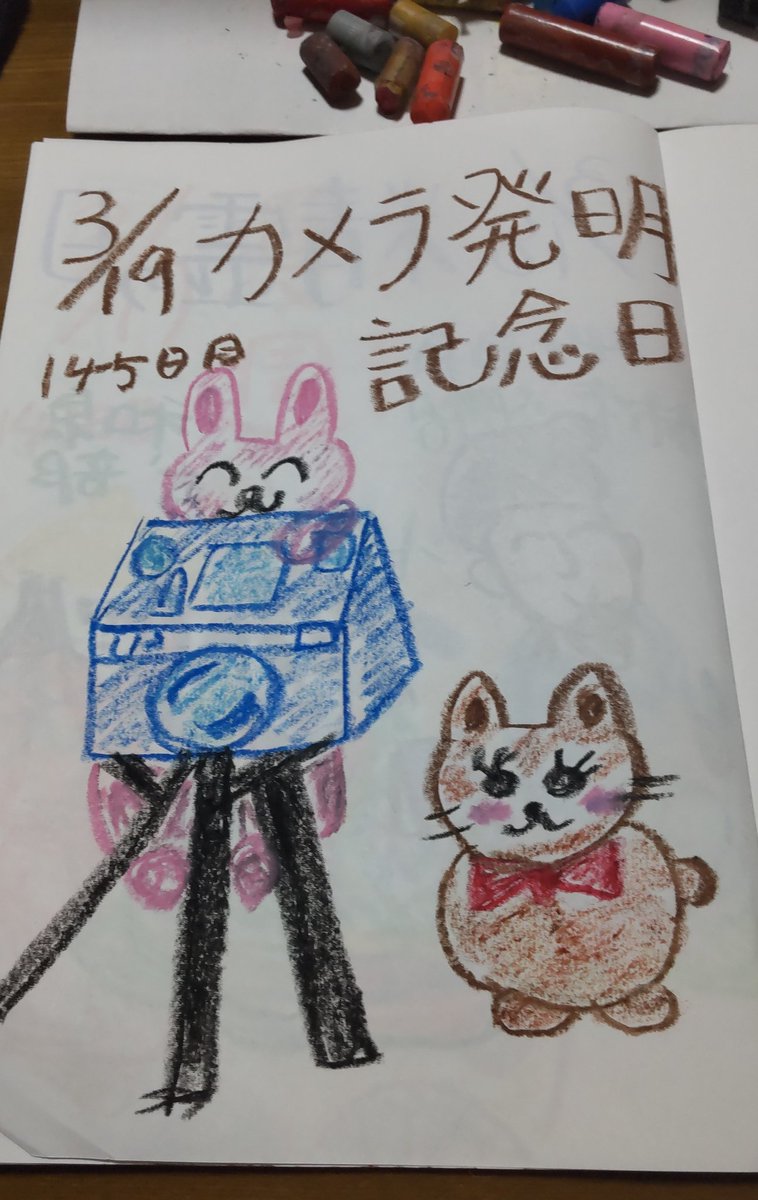 3/19カメラ発明
記念日
145日目